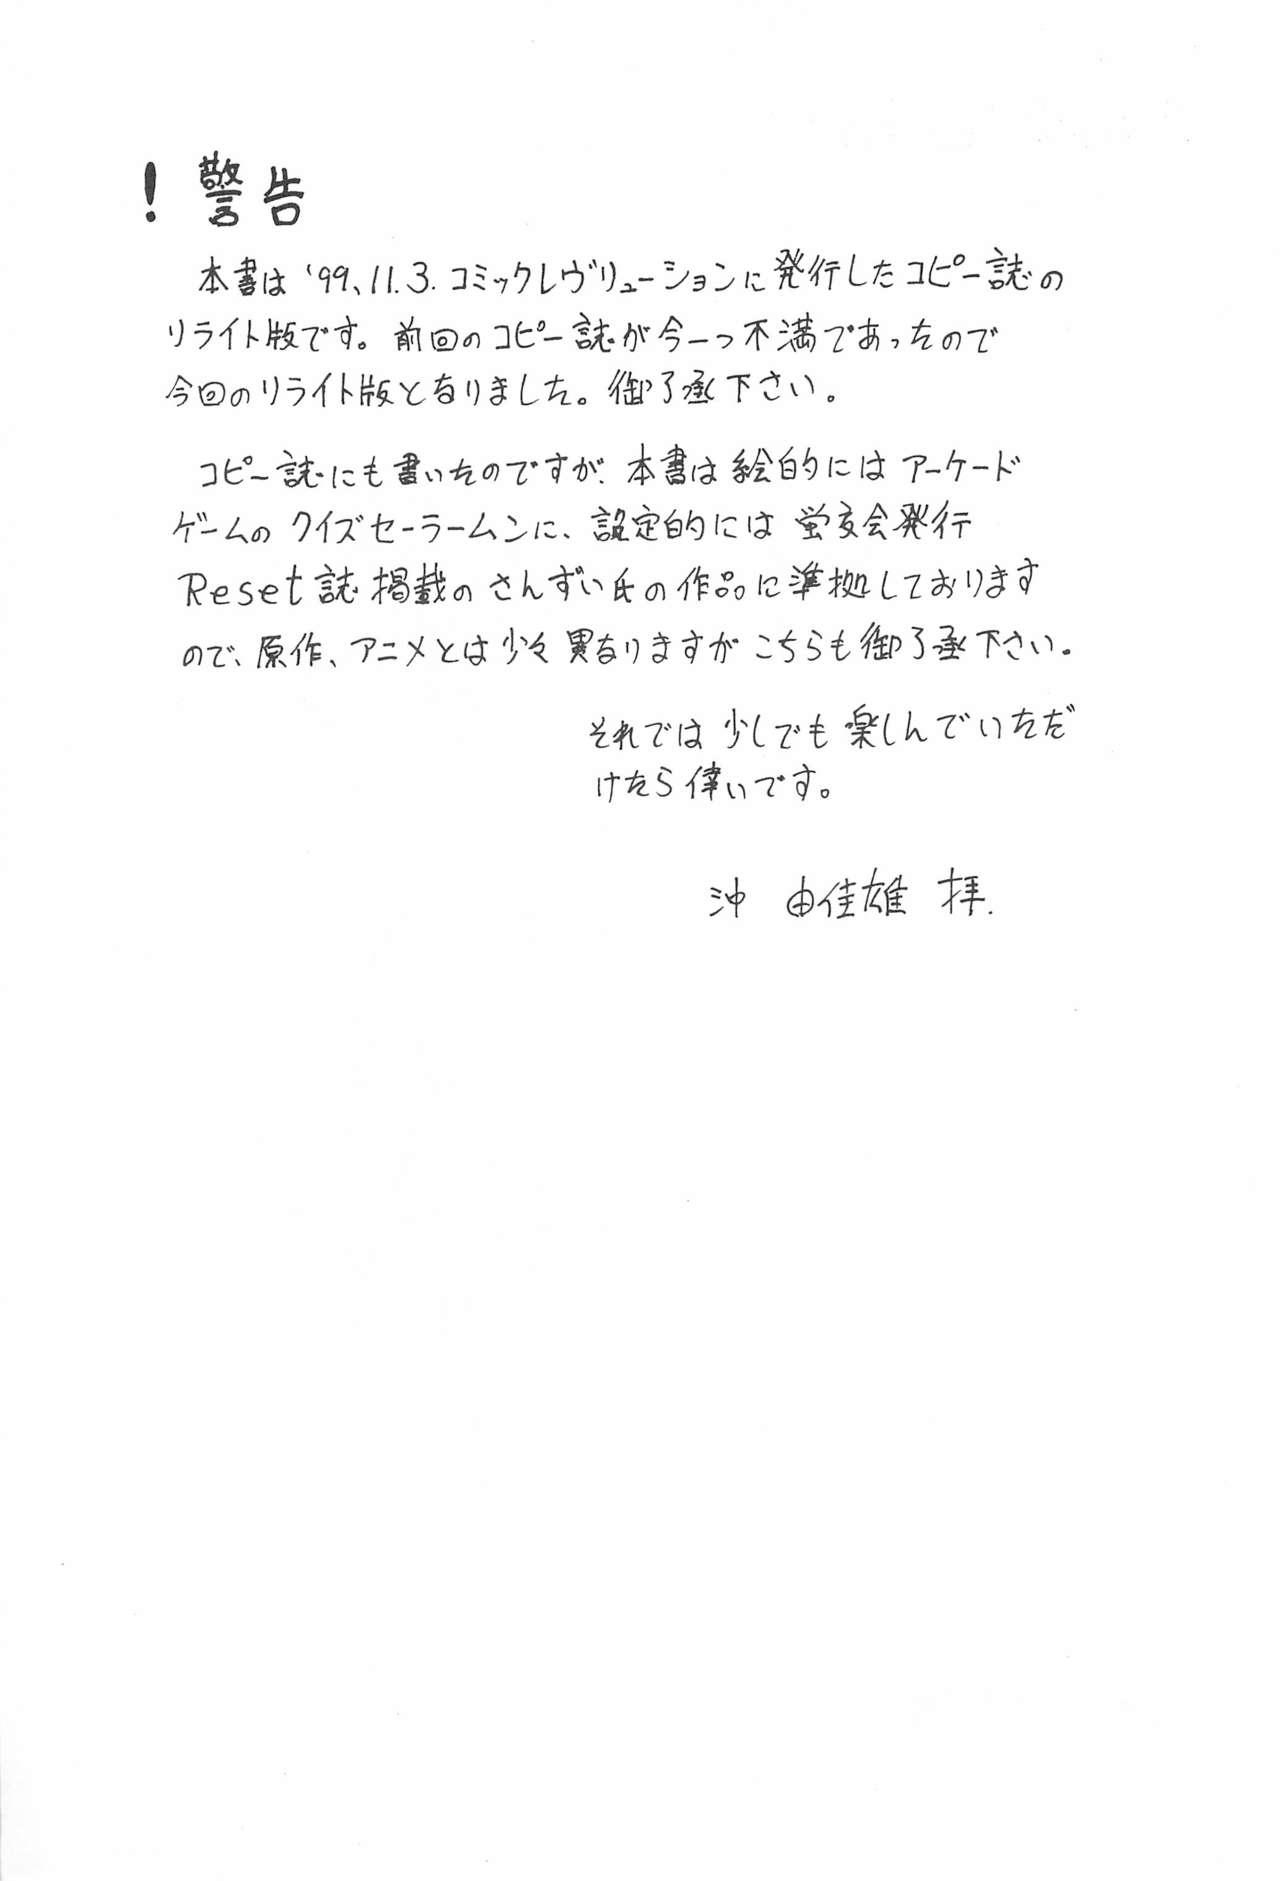 ！警告
本書は '99、11.3. コミックレヴリューションに発行したコピー誌の
リライト版です。前回のコピー誌が今一つ不満であったので
今回のリライト版となりました。御了承下さい。
コピー誌にも書いたのですが、本書は絵的にはアーケード
ゲームのクイズセーラームーンに、設定的には 蛍友会発行
Reset誌 掲載の さんずい氏の作品に準拠しております
ので、原作、アニメとは少々異なりますが こちらも御了承下さい。
それでは少しでも楽しんでいただ
けたら倖いです。
沖 由佳雄 拝.